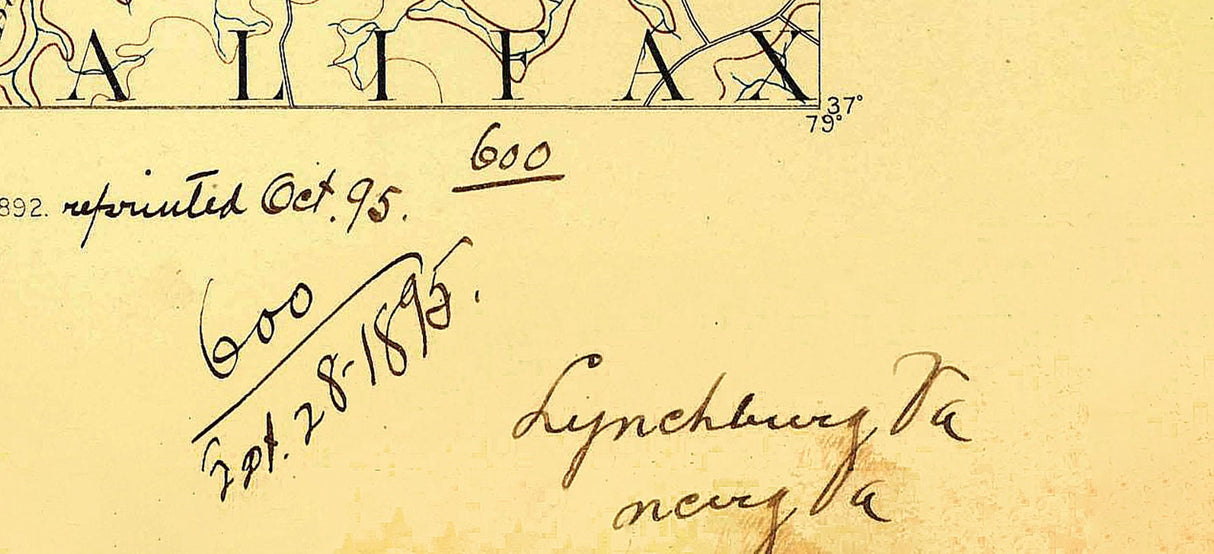 A L I F A X
37°
79°
600
892. reprinted Oct. 95.
600
Spt. 28-1895.
Lynchburg Va
Va